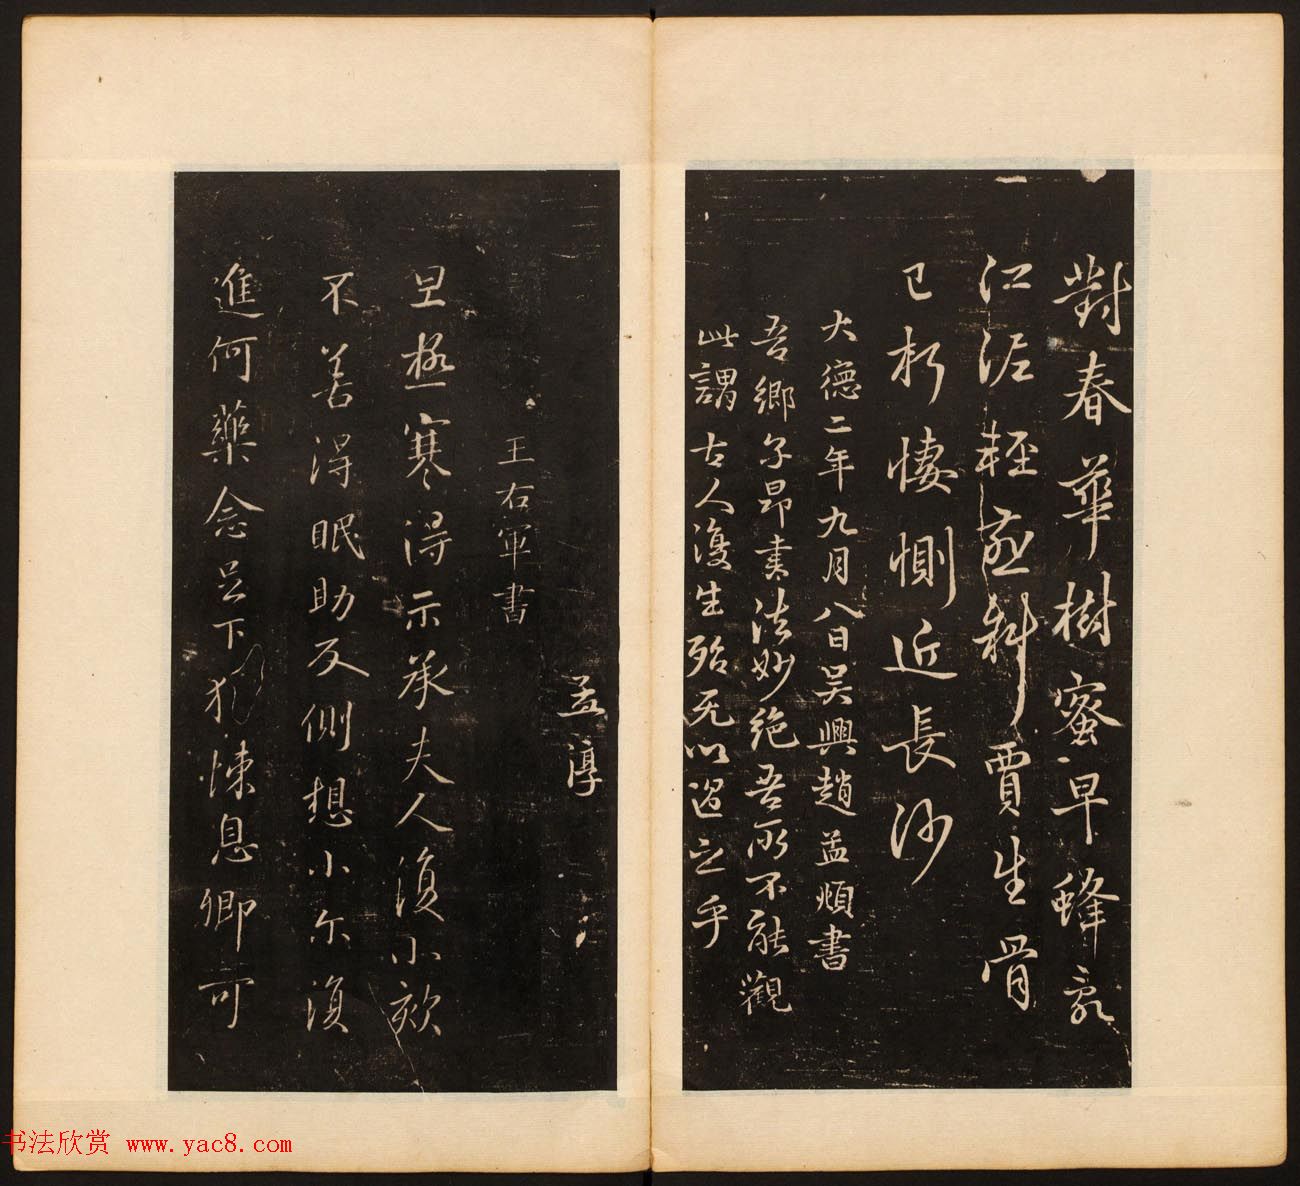 對春華樹蜜早蜂亂
江泥輕燕斜賈生骨
已朽悽惻近長沙
大德二年九月八日吴興趙孟頫書
吾鄉子昂書法妙絶吾所不能觀
此謂古人復生殆无以過之乎
孟淳
王右軍書
旦極寒得示承夫人復小欬
不善得眠助反側想小尔復
進何藥念足下犯悚息卿可
书法欣赏 www.yac8.com